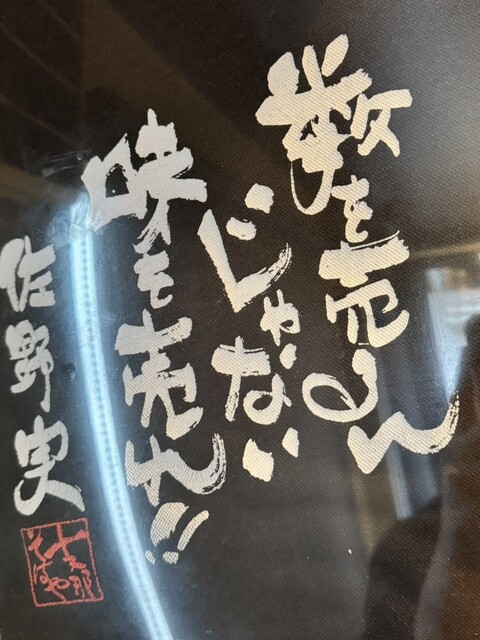 数を売るん
じゃない
味を売れ!!
佐野実
支那
そばや